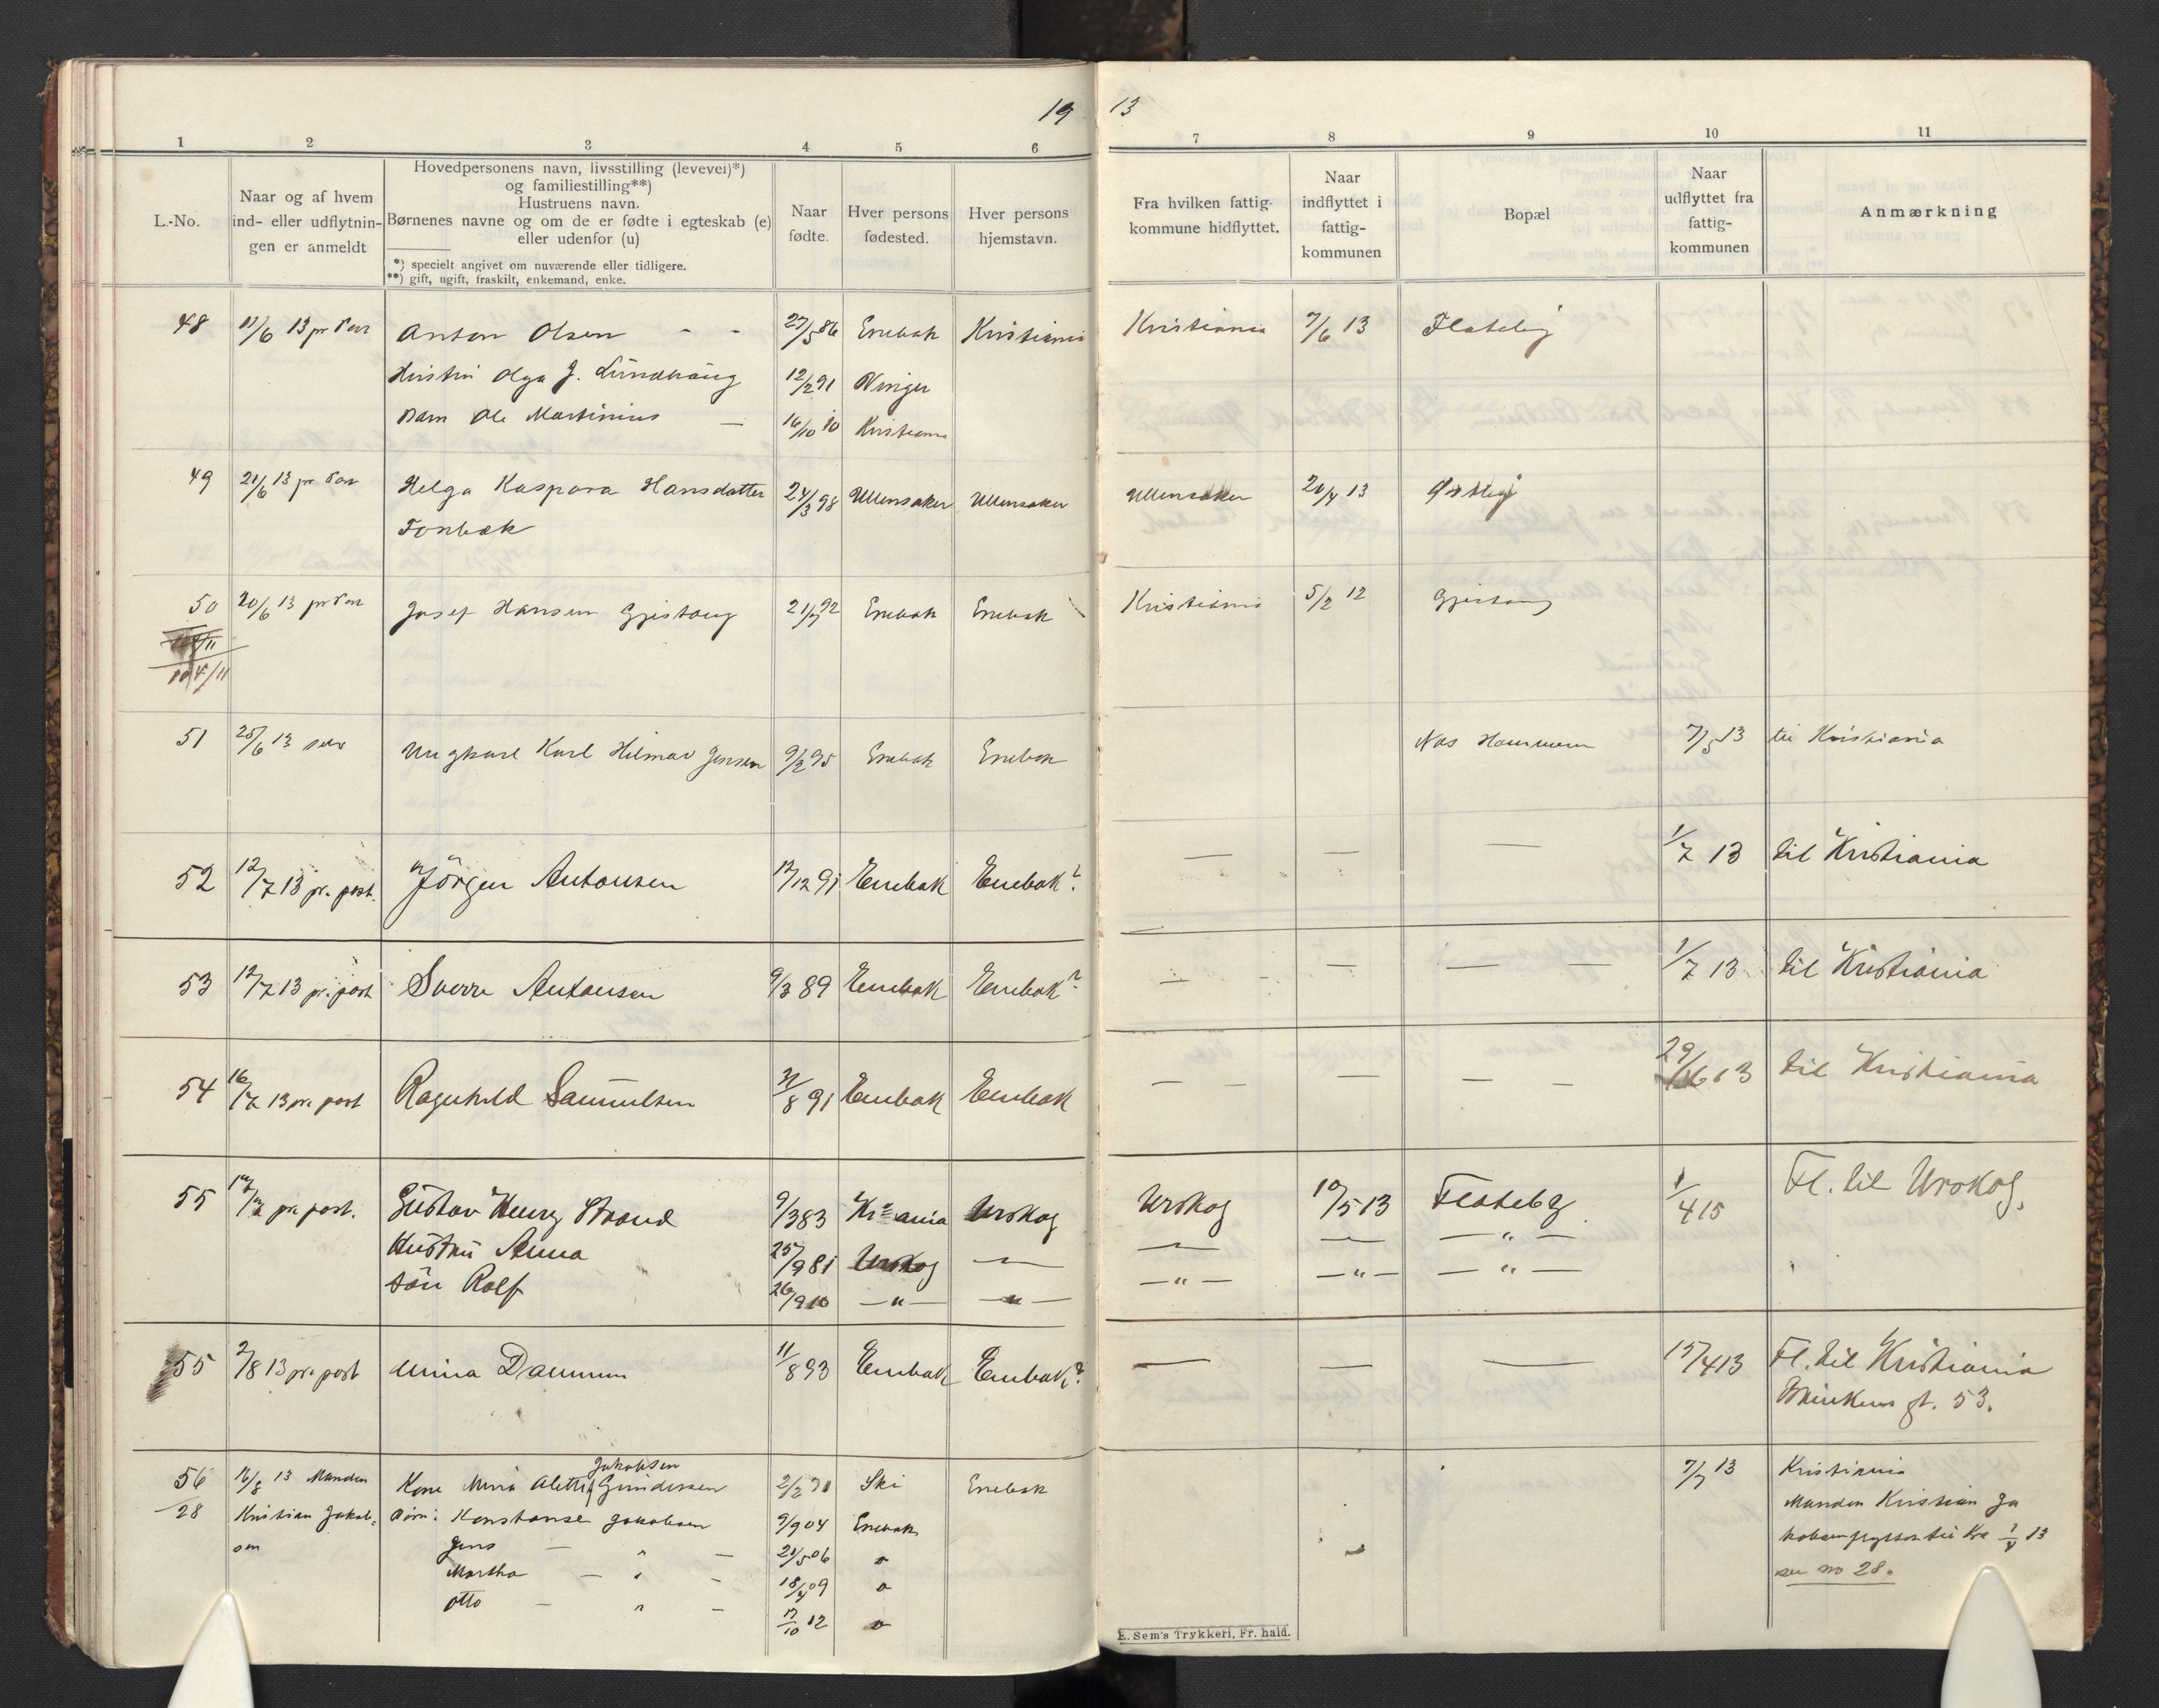 19 13
1 2 3 4 5 6 7 8 9 10 11
L.-No.
Naar og af hvem
ind- eller udflytnin-
gen er anmeldt
Hovedpersonens navn, livsstilling (levevei)*)
og familiestilling**)
Hustruens navn.
Børnenes navne og om de er fødte i egteskab (e)
eller udenfor (u)
*) specielt angivet om nuværende eller tidligere.
**) gift, ugift, fraskilt, enkemand, enke.
Naar
fødte.
Hver persons
fødested.
Hver persons
hjemstavn.
Fra hvilken fattig-
kommune hidflyttet.
Naar
indflyttet i
fattig-
kommunen
Bopæl
Naar
udflyttet fra
fattig-
kommunen
Anmærkning
48 11/6 13 pr Anton Olsen - - 27/5 86 Enebak Kristiania Kristiania 7/6 13 Flateby
Hustru Olga J. 12/2 91 Vinger
Barn Ole Martinius — 16/10 10 Kristiania
49 21/6 13 pr Helga Kaspara Hansdatter 24/3 98 Ullensaker Ullensaker Ullensaker 20/4 13
Fonbæk
50 20/6 13 pr Josef Hansen Gjestang 21/7 92 Enebak Enebak Kristiania 5/2 12 Gjestang
51 25/6 13 selv Ungkarl Karl Hilmar Jensen 9/2 95 Enebak Enebak Nos Hammeren 7/5 13 til Kristiania
52 12/7 13 pr. post. Jörgen Antonsen 13/12 91 Enebak Enebak? — — — 1/7 13 til Kristiania
53 12/7 13 pr. post Sverre Antonsen 9/3 89 Enebak Enebak? — — — — 1/7 13 til Kristiania
54 16/7 13 pr. post Ragnhild Samuelsen 31/8 91 Enebak Enebak — — — — — 29/6 13 til Kristiania
55 17/7 pr. post. Gustav Henry Strand 9/3 83 Kr=ania Urskog Urskog 10/5 13 Flateby 1/4 15 Fl. til Urskog.
Hustru Anna 25/9 81 Urskog — — — — " —
sön Rolf 26/9 10 — " — — " — — " — — " — — " —
55 2/8 13 pr. post Anna Dammen 11/8 93 Enebak Enebak? — — — 15/4 13 Fl. til Kristiania
gt. 53.
56 16/8 13 Manden Kone Mina Aletti Jakobsen Gundersen 2/2 71 Ski Enebak 7/7 13 Kristiania
28 Kristian Jakob= Börn: Konstanse Jakobsen 9/9 04 Enebak Manden Kristian Ja
sen Jens — " — 21/5 06 o kobsen flyttet til Kra 1/4 13
Martha — " — 18/4 09 o se no 28.
Otto — " — 17/10 12 o
E. Sem's Trykkeri, Fr. hald.